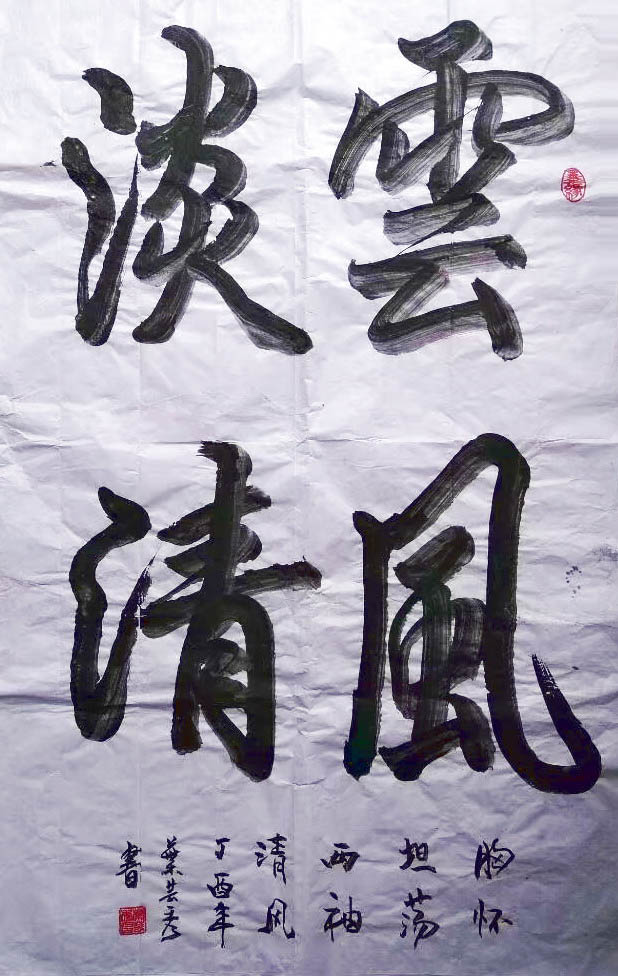 雲淡
風清
胸怀
坦荡
两袖
清风
丁酉年
葉芸
書